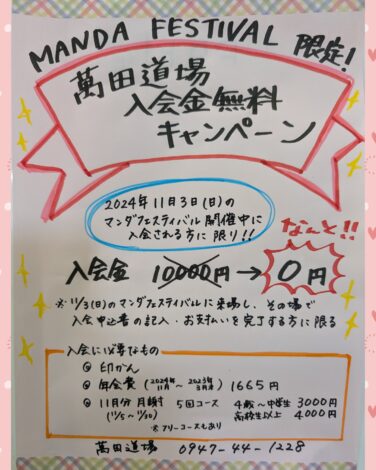 MANDA FESTIVAL 限定!
萬田道場
入会金無料
キャンペーン
2024年11月3日(日)の
マンダフェスティバル開催中に
入会される方に限り!!
なんと!!
入会金 10000円→0円
※11/3(日)のマンダフェスティバルに来場し、その場で
入会申込書の記入・お支払いを完了する方に限る
入会に必要なもの
◎ 印かん
◎ 年会費(2024年11月~2025年3月) 1665円
◎ 11月分 月謝 5回コース 4歳~中学生 3000円
(11/5~11/30) 高校生以上 4000円
※フリーコースもあり
萬田道場 0947-44-1228